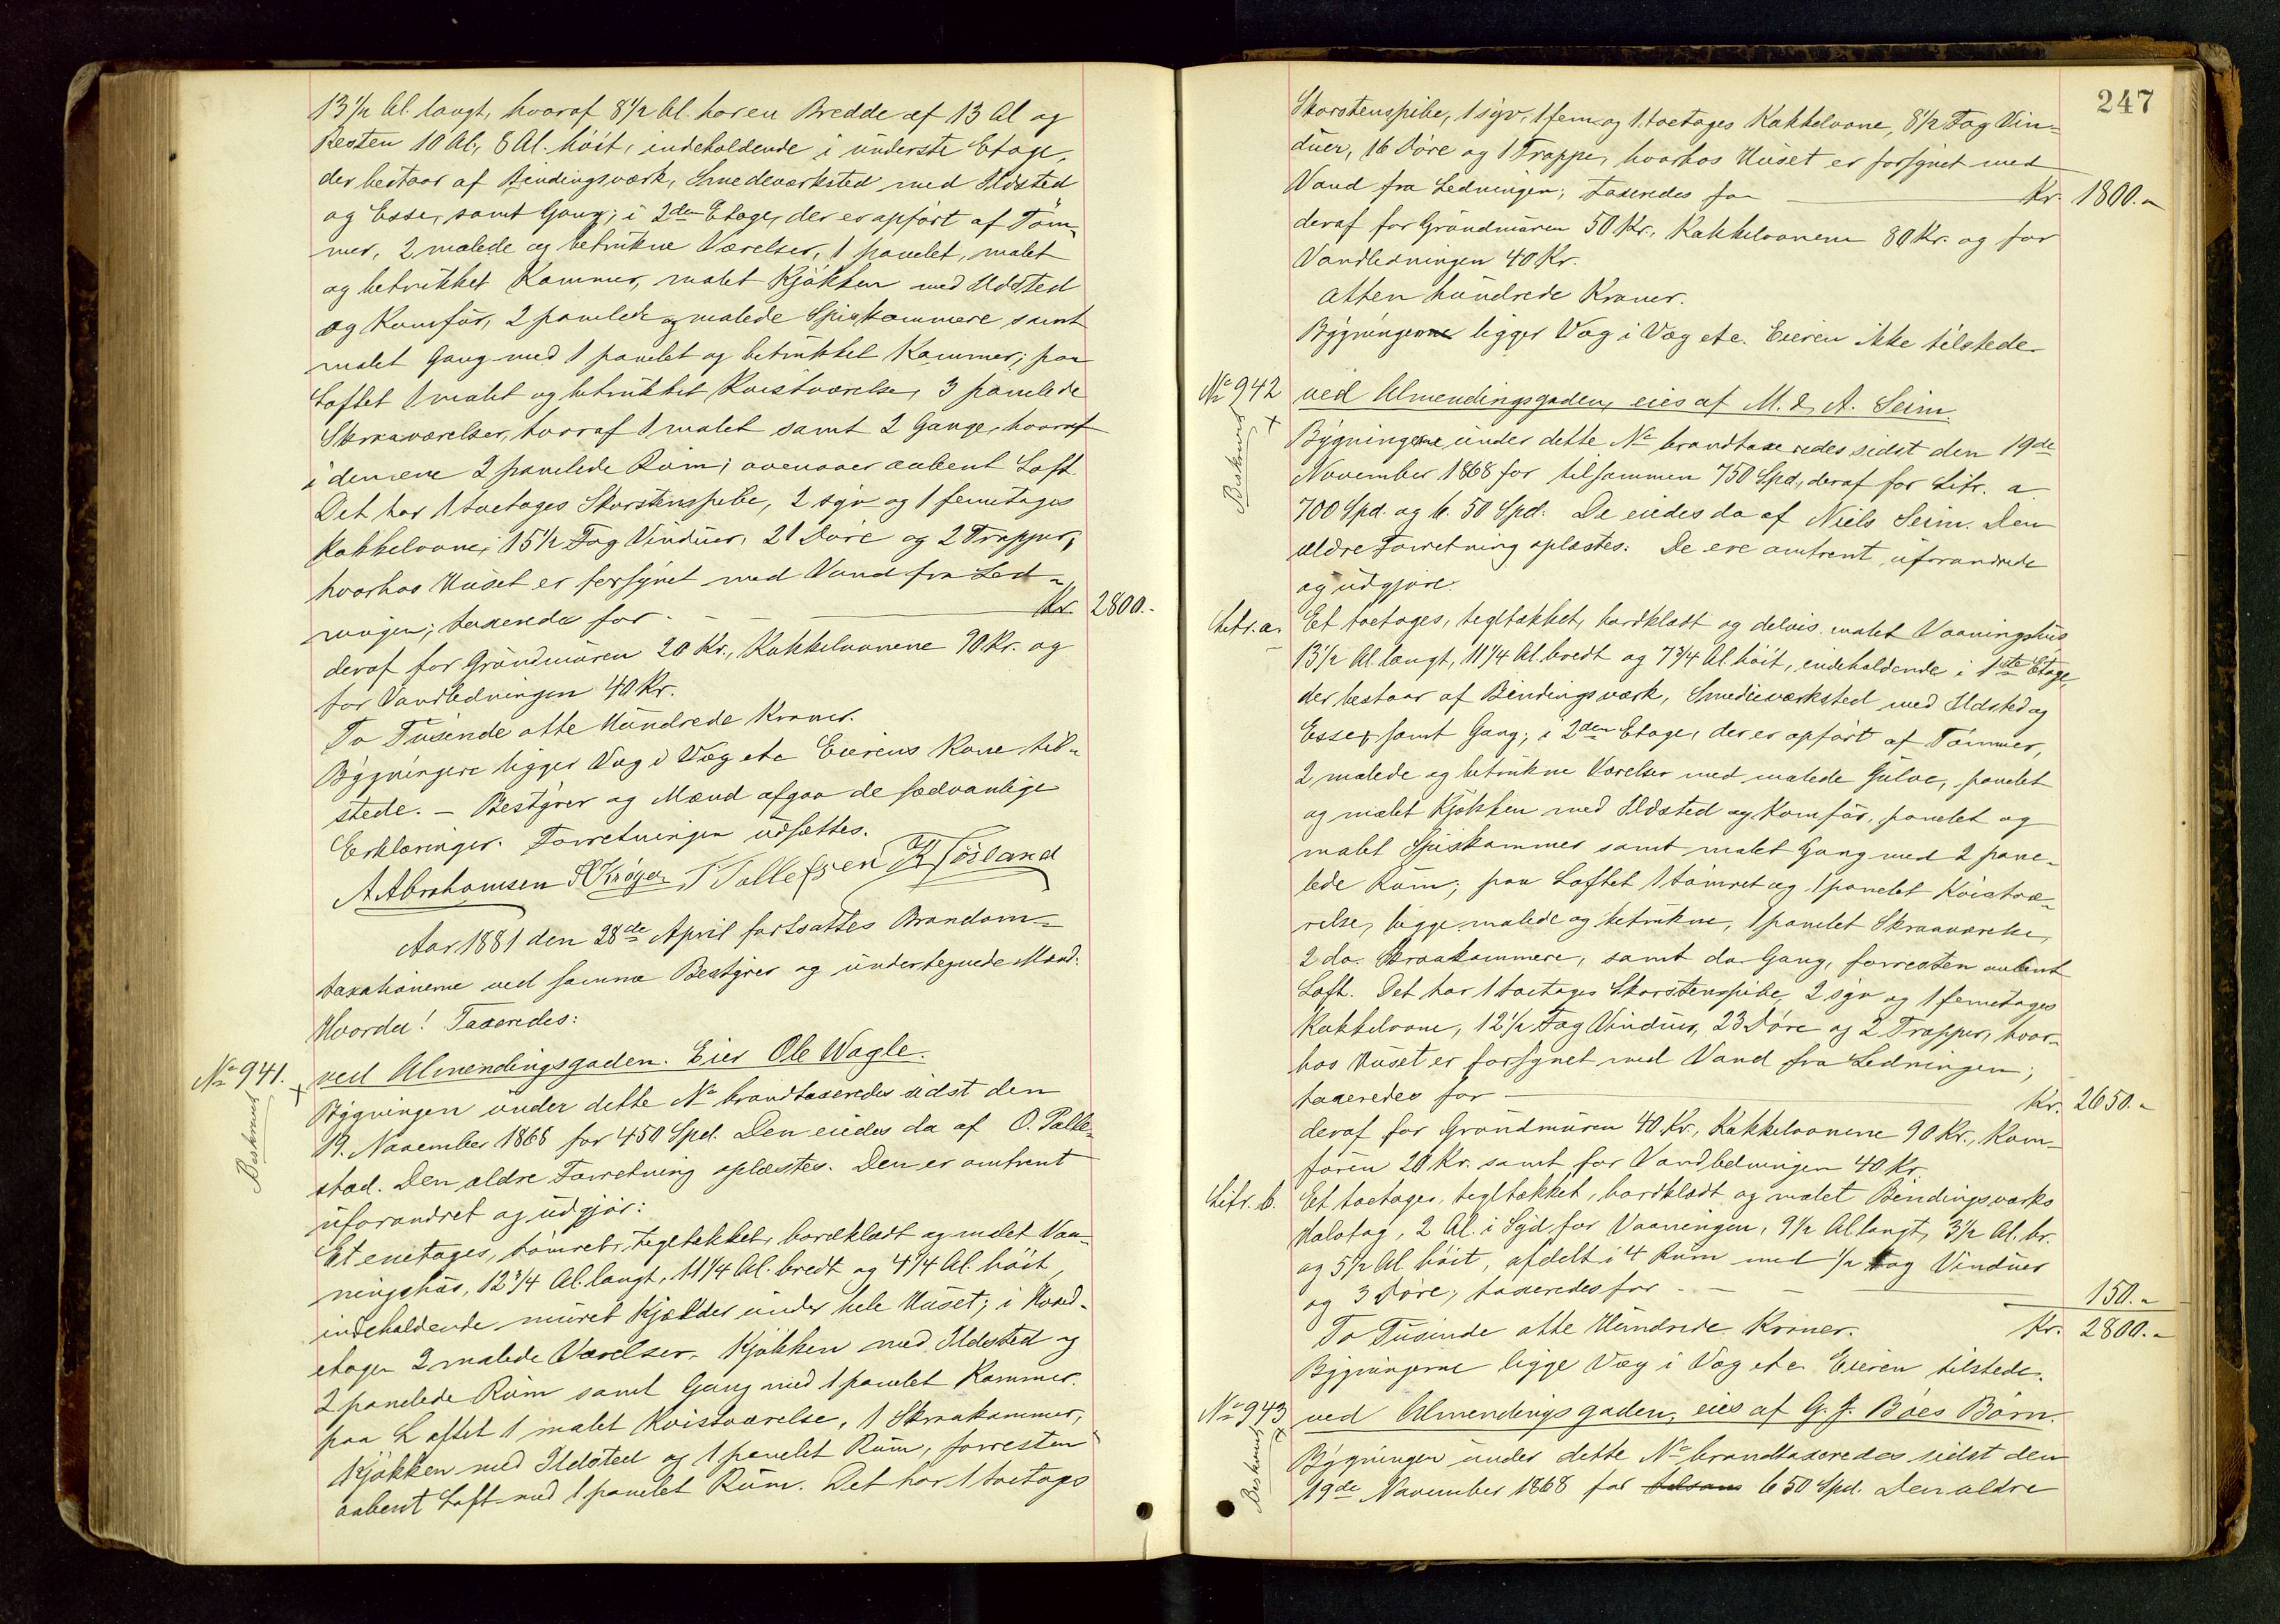 13 1/2 Al. langt, hvoraf 8 1/2 Al. har en Bredde af 13 Al og
Resten 10 Al., 8 Al. høit, indeholdende i underste Etage,
der bestaar af Bindingsværk, Smedeværksted med Ildsted
og Esse, samt Gang; i 2den Etage, der er opført af Tøm-
mer, 2 malede og betrukne Værelser, 1 panelet, malet
og betrukket Kammer, malet Kjøkken med Ildsted
og Komfur, 2 panelede og malede Spiskammere samt
malet Gang med 1 panelet og betrukket Kammer; paa
Loftet 1 malet og betrukket Kvistværelse, 3 panelede
Skraaværelser, hvoraf 1 malet samt 2 Gange, hvoraf
i den ene 2 panelede Rum; ovenover aabent Loft.
Det har 1 toetages Skorstenspibe, 2 syv og 1 femetages
Kakkelovne, 15 1/2 Fag Vinduer, 21 Døre og 2 Trapper,
hvorhos Huset er forsynet med Vand fra Led-
ningen; taxeredes for - - - Kr. 2800.-
deraf for Grundmuren 20 Kr., Kakkelovnene 90 Kr. og
for Vandledningen 40 Kr.
To Tusinde otte Hundrede Kroner.
Bygningerne ligger Væg i Væg etc Eierens Kone til-
stede. - Bestyrer og Mænd afgav de sædvanlige
Erklæringer. Forretningen udsættes.
A Abrahamsen P Krøger T Tollefsen K Fösland
Aar 1881 den 28de April fortsattes Brandom-
taxationerne ved samme Bestyrer og undertegnede Mænd.
Hvorda! Taxeredes:
No 941. ved Almendingsgaden. Eier Ole Wagle.
Beskrevet
Bygningen under dette No brandtaxeredes sidst den
19. November 1868 for 450 Spd. Den eiedes da af O. Palle-
stad. Den ældre Forretning oplæstes. Den er omtrent
uforandret og udgjør:
Et enetages, tømret, tegltækket, bordklædt og malet Vaa-
ningshus, 12 3/4 Al. langt, 11 1/4 Al. bredt og 4 1/4 Al. høit,
indeholdende muret Kjælder under hele Huset; i Hoved-
etagen 2 malede Værelser, Kjøkken med Ildsted og
2 panelede Rum samt Gang med 1 panelet Kammer.
paa Loftet 1 malet Kvistværelse, 1 Skraakammer,
Kjøkken med Ildsted og 1 panelet Rum, forresten
aabent Loft med 1 panelet Rum. Det har 1 toetages
247
Skorstenspibe, 1 syv, 1 fem og 1 toetages Kakkelovne, 8 1/2 Fag Vin-
duer, 16 Døre og 1 Trappe, hvorhos Huset er forsynet med
Vand fra Ledningen; taxeredes for Kr. 1800.-
deraf for Grundmuren 50 Kr., Kakkelovnene 80 Kr. og for
Vandledningen 40 Kr.
Atten hundrede Kroner.
Bygningerne ligger Væg i Væg etc. Eieren ikke tilstede.
No 942 ved Almendingsgaden, eies af M. & A. Seim.
Beskrevet
Bygningerne under dette No brandtaxeredes sidst den 19de
November 1868 for tilsammen 750 Spd., deraf for Litr. a
700 Spd. og b. 50 Spd. De eiedes da af Niels Seim. Den
ældre Forretning oplæstes. De ere omtrent uforandrede
og udgjøre.
Litr. a. Et toetages, tegltækket, bordklædt og delvis malet Vaaningshus
13 1/2 Al. langt, 11 1/4 Al. bredt og 7 3/4 Al. høit, indeholdende i 1ste Etage,
der bestaar af Bindingsværk, Smedieværksted med Ildsted og
Esse, samt Gang; i 2den Etage, der er opført af Tømmer,
2 malede og betrukne Værelser med malede Gulve, panelet
og malet Kjøkken med Ildsted og Komfur, panelet og
malet Spiskammer samt malet Gang med 2 pane-
lede Rum; paa Loftet 1 tømret og 1 panelet Kvistvæ-
relse, begge malede og betrukne, 1 panelet Skraaværelse,
2 do. Skraakammere, samt do. Gang, forresten aabent
Loft. Det har 1 toetages Skorstenspibe, 2 syv og 1 femetages
Kakkelovne, 12 1/2 Fag Vinduer, 23 Døre og 2 Trapper, hvor-
hos Huset er forsynet med Vand fra Ledningen;
taxeredes for Kr. 2650.-
deraf for Grundmuren 40 Kr., Kakkelovnene 90 Kr., Kom-
furen 20 Kr. samt for Vandledningen 40 Kr.
Litr. b. Et toetages, tegltækket, bordklædt og malet Bindingsværks
Halvtag, 2 Al. i Syd for Vaaningen, 9 1/2 Al langt, 3 1/2 Al. br.
og 5 1/2 Al. høit, afdelt i 4 Rum med 1/2 Fag Vinduer
og 3 Døre; taxeredes for - - 150.-
To Tusinde otte Hundrede Kroner. Kr. 2800.-
Bygningerne ligge Væg i Væg etc. Eieren tilstede.
No 943 ved Almendingsgaden, eies af G. J. Bøes Børn.
Beskrevet
Bygningen under dette No brandtaxeredes sidst den
19de November 1868 for tilsam 650 Spd. Den ældre